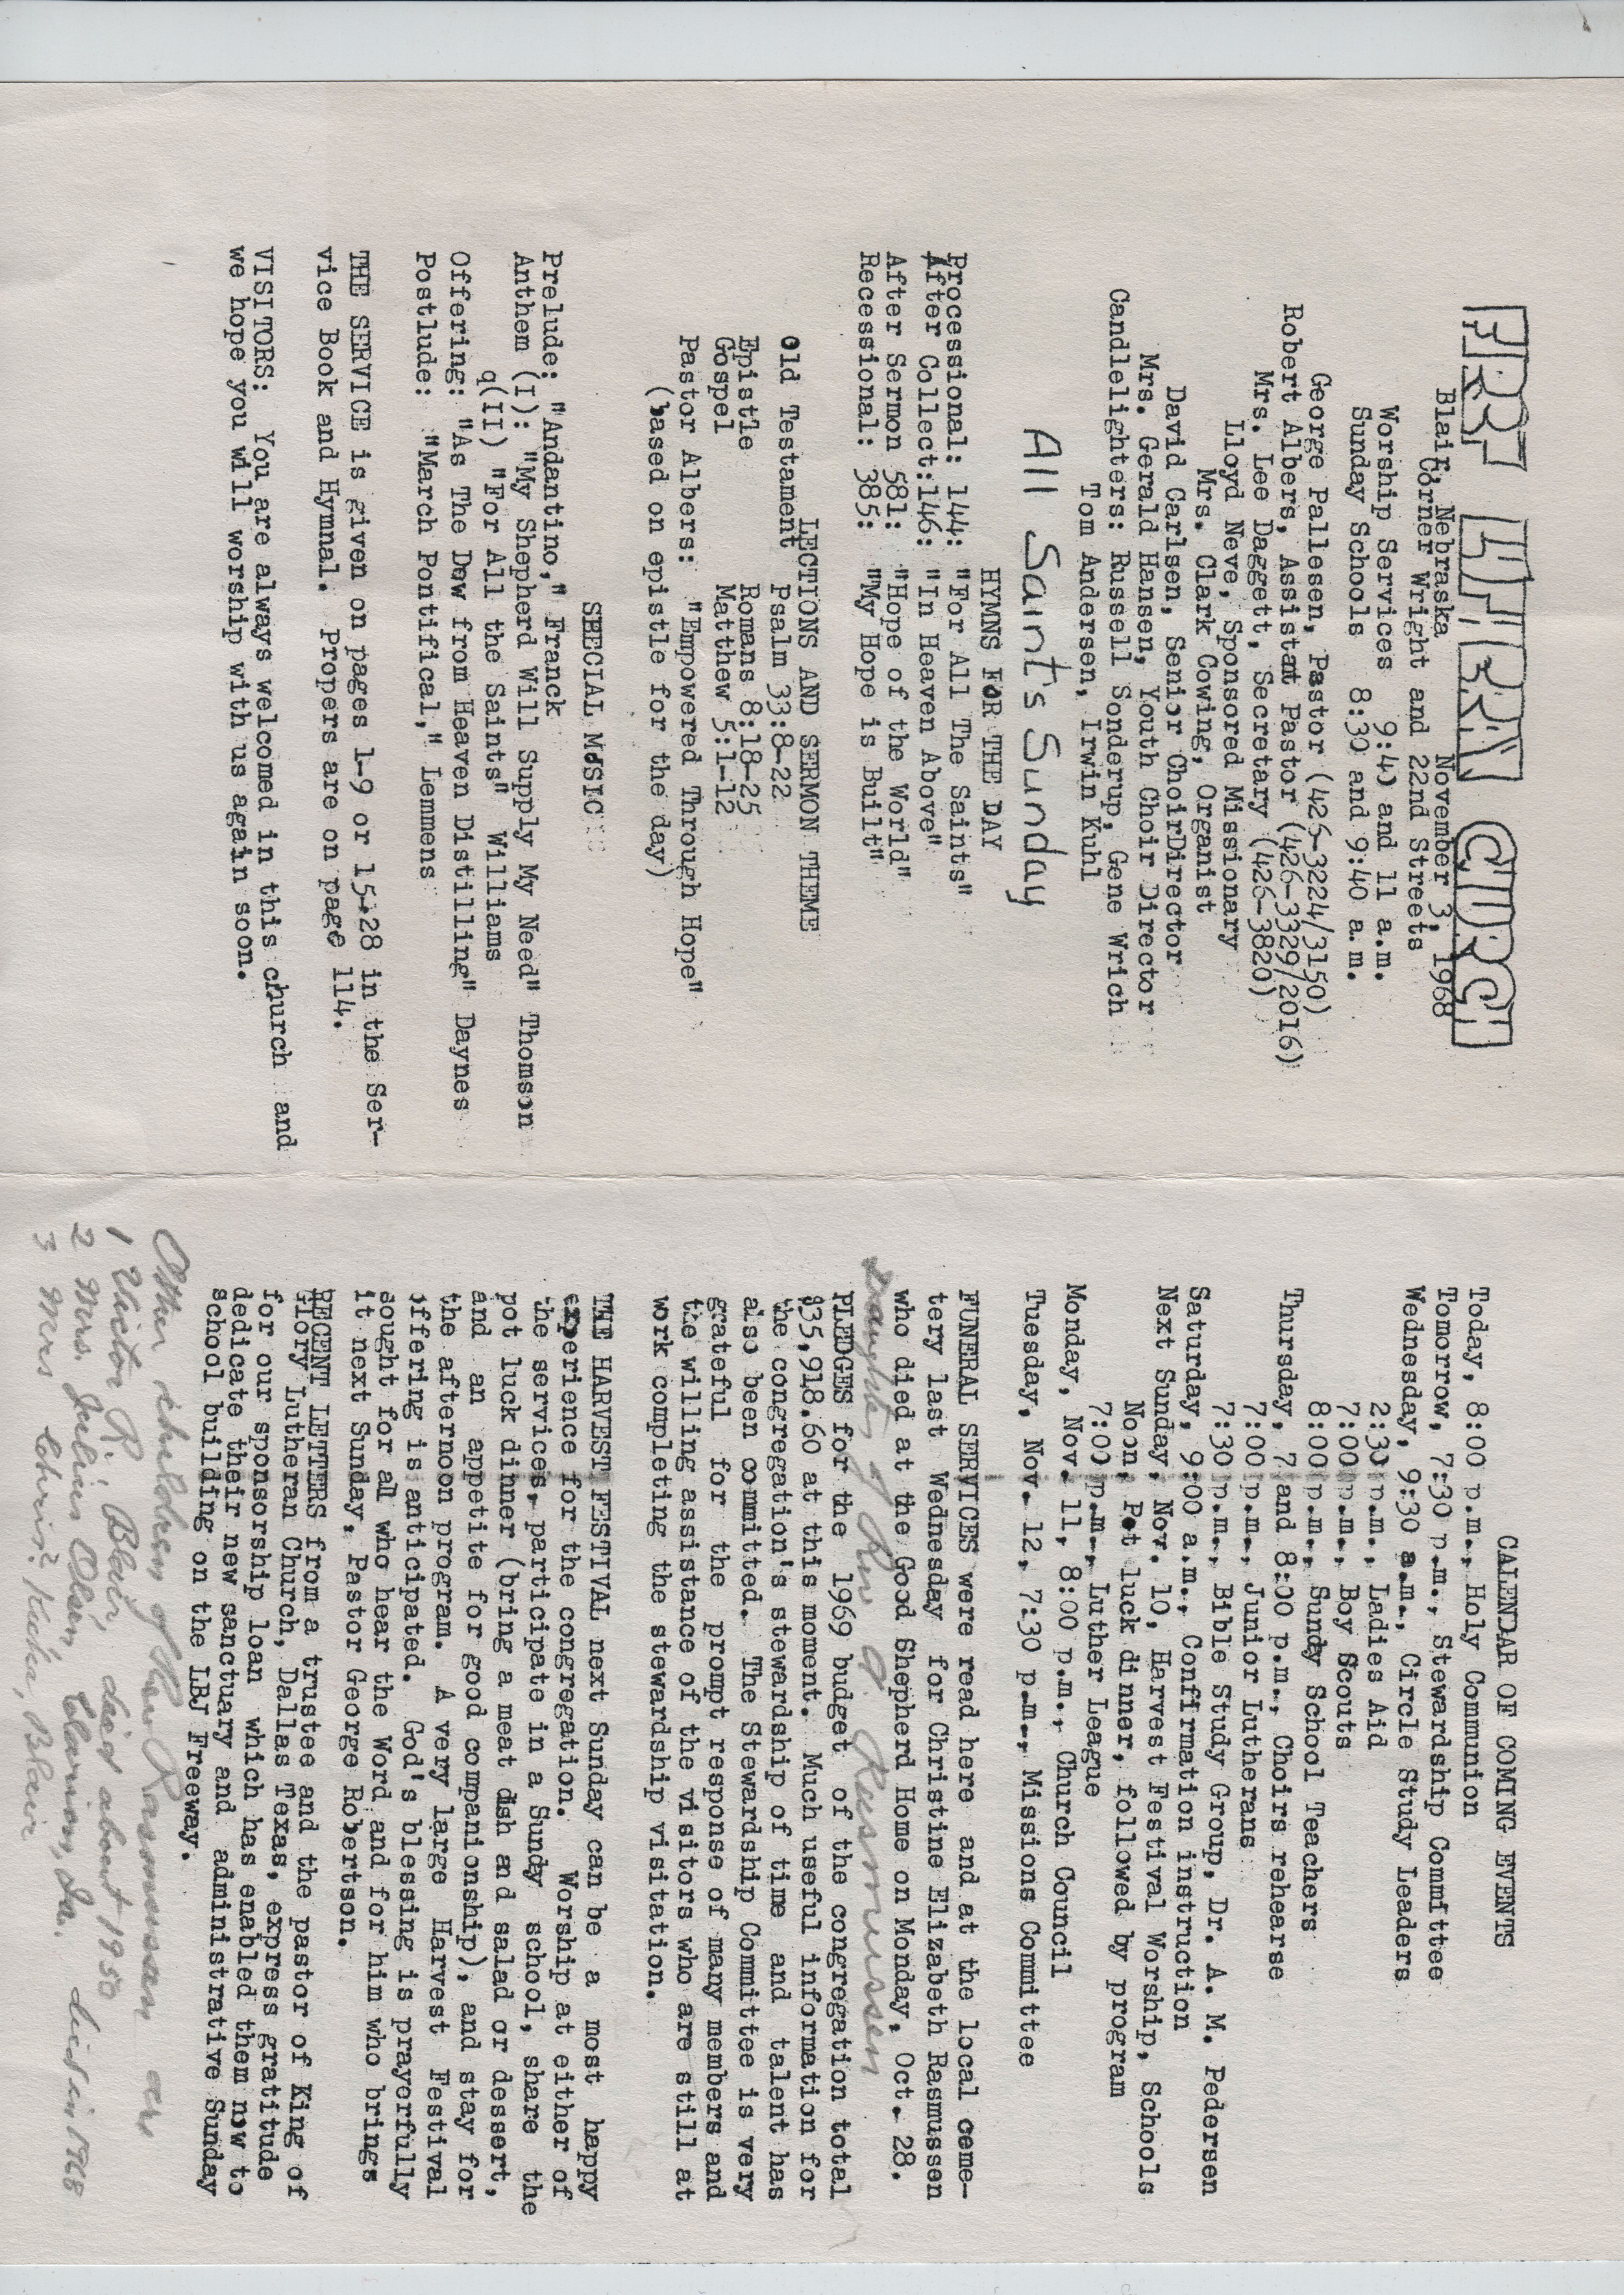 FIRST LUTHERAN CHURCH
Blair, Nebraska November 3, 1968
Corner Wright and 22nd Streets
Worship Services 9:40 and 11 a.m.
Sunday Schools 8:30 and 9:40 a.m.
George Pallesen, Pastor (426-3224/3150)
Robert Albers, Assistant Pastor (426-3329/2016)
Mrs. Lee Daggett, Secretary (426-3820)
Lloyd Neve, Sponsored Missionary
Mrs. Clark Cowing, Organist
David Carlsen, Senior ChoirDirector
Mrs. Gerald Hansen, Youth Choir Director
Candlelighters: Russell Sonderup, Gene Wrich
Tom Andersen, Irwin Kuhl
All Saint's Sunday
HYMNS FOR THE DAY
Processional: 144: "For All The Saints"
After Collect:146: "In Heaven Above"
After Sermon 581: "Hope of the World"
Recessional: 385: "My Hope is Built"
LECTIONS AND SERMON THEME
Old Testament Psalm 33:8-22
Epistle Romans 8:18-25
Gospel Matthew 5:1-12
Pastor Albers: "Empowered Through Hope"
(based on epistle for the day)
SPECIAL MUSIC
Prelude: "Andantino," Franck
Anthem (I): "My Shepherd Will Supply My Need" Thomson
q(II) "For All the Saints" Williams
Offering: "As The Dew from Heaven Distilling" Daynes
Postlude: "March Pontifical," Lemmens
THE SERVICE is given on pages 1-9 or 15-28 in the Ser-
vice Book and Hymnal. Propers are on page 114.
VISITORS: You are always welcomed in this church and
we hope you will worship with us again soon.
CALENDAR OF COMING EVENTS
Today, 8:00 p.m., Holy Communion
Tomorrow, 7:30 p.m., Stewardship Committee
Wednesday, 9:30 a.m., Circle Study Leaders
2:30 p.m., Ladies Aid
7:00 p.m., Boy Scouts
8:00 p.m., Sundy School Teachers
Thursday, 7 and 8:00 p.m., Choirs rehearse
7:00 p.m., Junior Lutherans
7:30 p.m., Bible Study Group, Dr. A. M. Pedersen
Saturday, 9:00 a.m., Confirmation instruction
Next Sunday, Nov. 10, Harvest Festival Worship, Schools
Noon, Pot luck dinner, followed by program
7:00 p.m., Luther League
Monday, Nov. 11, 8:00 p.m., Church Council
Tuesday, Nov. 12, 7:30 p.m., Missions Committee
FUNERAL SERVICES were read here and at the local ceme-
tery last Wednesday for Christine Elizabeth Rasmussen
who died at the Good Shepherd Home on Monday, Oct. 28.
Daughter of Rev A. Rasmussen
PLEDGES for the 1969 budget of the congregation total
$35,918.60 at this moment. Much useful information for
the congregation's stewardship of time and talent has
also been committed. The Stewardship Committee is very
grateful for the prompt response of many members and
the willing assistance of the visitors who are still at
work completing the stewardship visitation.
THE HARVEST FESTIVAL next Sunday can be a most happy
experience for the congregation. Worship at either of
the services, participate in a Sundy school, share the
pot luck dinner (bring a meat dish and salad or dessert,
and an appetite for good companionship), and stay for
the afternoon program. A very large Harvest Festival
offering is anticipated. God's blessing is prayerfully
sought for all who hear the Word and for him who brings
it next Sunday, Pastor George Robertson.
RECENT LETTERS from a trustee and the pastor of King of
Glory Lutheran Church, Dallas Texas, express gratitude
for our sponsorship loan which has enabled them now to
dedicate their new sanctuary and administrative Sunday
school building on the LBJ Freeway.
Other children of Rev Rasmussen are
1 Victor R, Blair, died about 1950
2 Mrs. Julius Olsen, Clarion, Ia. died in 1968
3 Mrs Chris? Kuhr, Blair